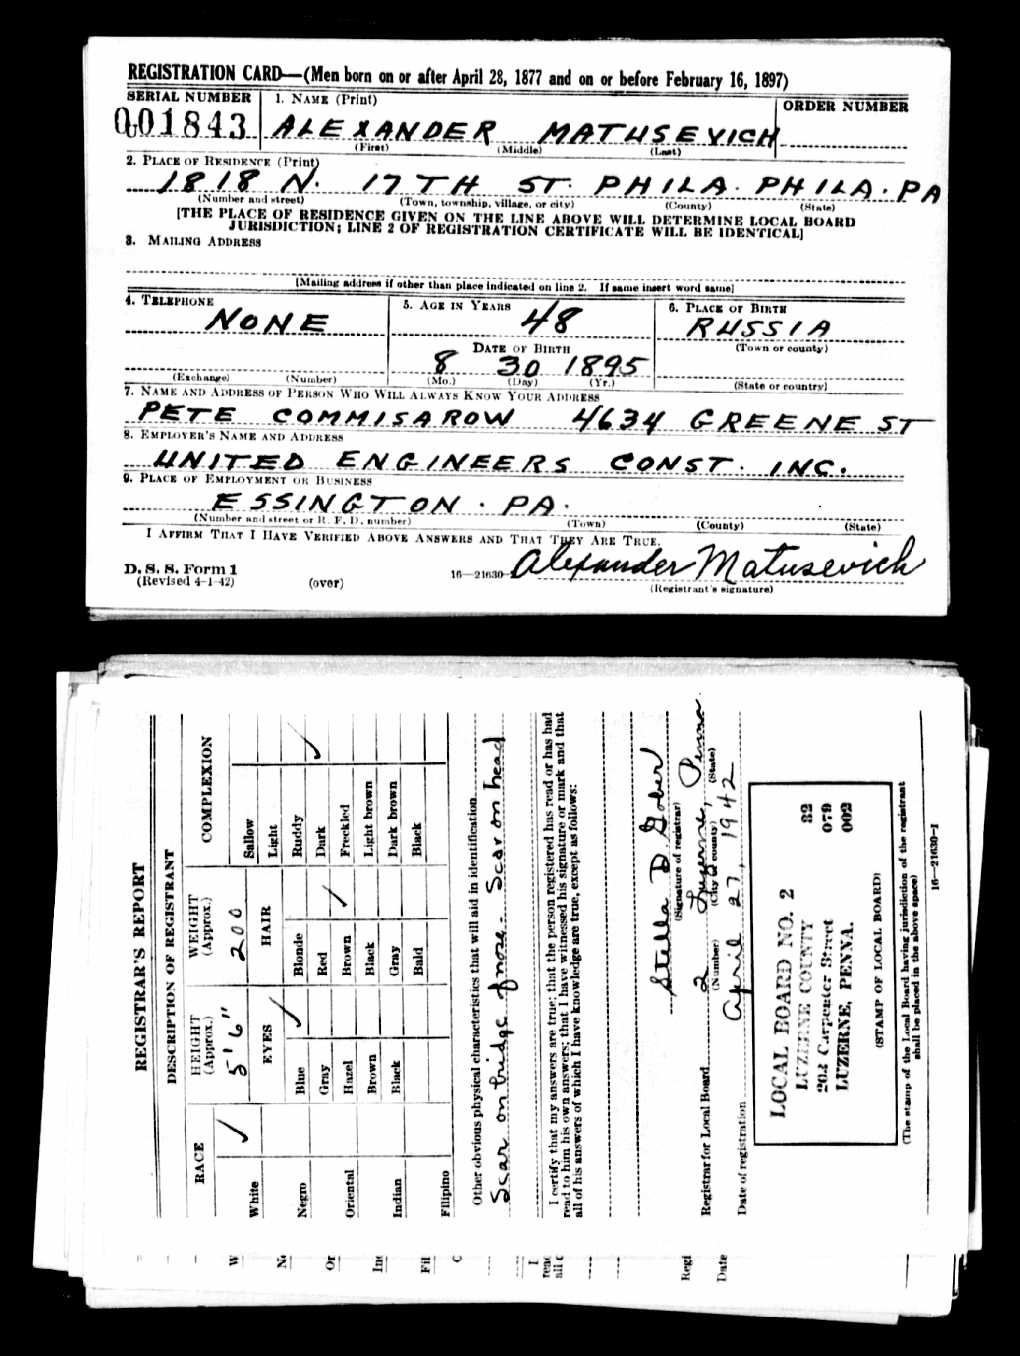 REGISTRATION CARD—(Men born on or after April 28, 1877 and on or before February 16, 1897)
SERIAL NUMBER 1. NAME (Print) ORDER NUMBER
U 001843 ALEXANDER MATUSEVICH
(First) (Middle) (Last)
2. PLACE OF RESIDENCE (Print)
1818 N. 17TH ST. PHILA. PHILA. PA
(Number and street) (Town, township, village, or city) (County) (State)
[THE PLACE OF RESIDENCE GIVEN ON THE LINE ABOVE WILL DETERMINE LOCAL BOARD
JURISDICTION; LINE 2 OF REGISTRATION CERTIFICATE WILL BE IDENTICAL]
3. MAILING ADDRESS
[Mailing address if other than place indicated on line 2. If same insert word same]
4. TELEPHONE 5. AGE IN YEARS 6. PLACE OF BIRTH
NONE 48 RUSSIA
DATE OF BIRTH (Town or county)
8 30 1895
(Exchange) (Number) (Mo.) (Day) (Yr.) (State or country)
7. NAME AND ADDRESS OF PERSON WHO WILL ALWAYS KNOW YOUR ADDRESS
PETE COMMISAROW 4634 GREENE ST
8. EMPLOYER'S NAME AND ADDRESS
UNITED ENGINEERS CONST. INC.
9. PLACE OF EMPLOYMENT OR BUSINESS
ESSINGTON. PA.
(Number and street or R. F. D. number) (Town) (County) (State)
I AFFIRM THAT I HAVE VERIFIED ABOVE ANSWERS AND THAT THEY ARE TRUE.
D. S. S. Form 1
(Revised 4-1-42) (over) 16—21630 Alexander Matusevich
(Registrant's signature)
REGISTRAR'S REPORT
DESCRIPTION OF REGISTRANT
RACE HEIGHT (Approx.) WEIGHT (Approx.) COMPLEXION
White ✓ 5' 6" 200 Sallow
EYES HAIR Light
Negro Blue ✓ Blonde Ruddy
Gray Red Dark ✓
Oriental Hazel Brown ✓ Freckled
Brown Black Light brown
Indian Black Gray Dark brown
Bald Black
Filipino
Other obvious physical characteristics that will aid in identification
Scar on bridge of nose - Scar on head
I certify that my answers are true; that the person registered has read or has had
read to him his own answers; that I have witnessed his signature or mark and that
all of his answers of which I have knowledge are true, except as follows:
Stella D. Gober
(Signature of registrar)
Registrar for Local Board 2 Luzerne, Penna.
(Number) (City or county) (State)
Date of registration April 27, 1942
LOCAL BOARD NO. 2 82
LUZERNE COUNTY 079
202 Carpenter Street 002
LUZERNE, PENNA.
(STAMP OF LOCAL BOARD)
(The stamp of the Local Board having jurisdiction of the registrant
shall be placed in the above space)
16—21630-1